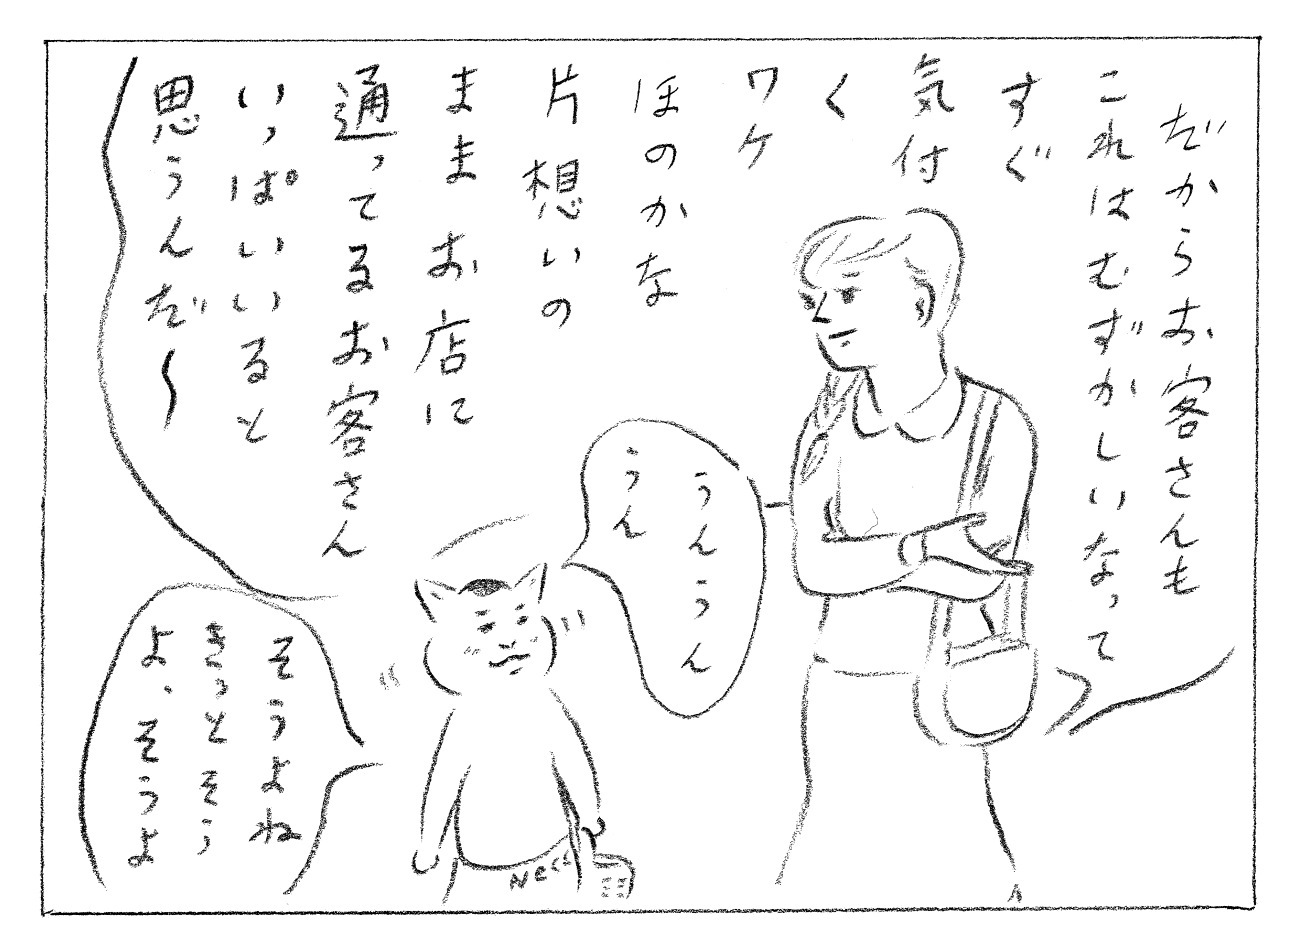 だからお客さんも
これはむずかしいなって
すぐ
気付
く
ワケ
ほのかな
片想いの
ままお店に
通ってるお客さん
いっぱいいると
思うんだ〜
うんうん
うん
そうよね
きっとそう
よ、そうよ